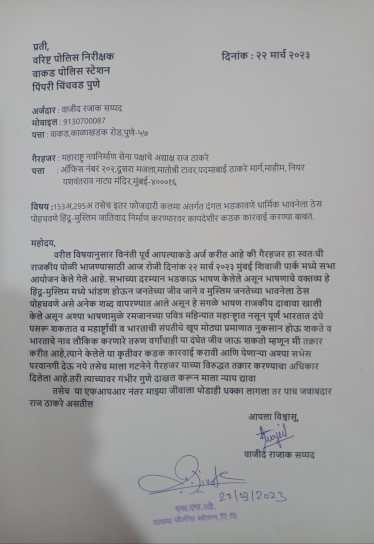 प्रती,
वरिष्ट पोलिस निरीक्षक
दिनांक : २२ मार्च २०२३
वाकड पोलिस स्टेशन
पिंपरी चिंचवड पुणे
अर्जदार : वाजीद रजाक सय्यद
मोबाईल : 9130700087
पत्ता : वाकड,काळाखडक रोड,पुणे-५७
गैरहजर : महाराष्ट्र नवनिर्माण सेना पक्षाचे अध्यक्ष राज ठाकरे
पत्ता : ऑफिस नंबर २०२,दुसरा मजला,मातोश्री टावर,पदमाबाई ठाकरे मार्ग,माहीम, नियर
यशवंतराव नाट्य मंदिर,मुंबई-४०००१६
विषय :153अ,295अ तसेच इतर फोजदारी कलमा अंतर्गत दंगल भडकावणे धार्मिक भावनेला ठेस
पोहचवणे हिंदु-मुस्लिम जातिवाद निर्माण करण्यारवर कायदेशीर कडक कारवाई करण्या बाबत.
महोदय,
वरील विषयानुसार विनंती पूर्व आपल्याकडे अर्ज करीत आहे की गैरहजर हा स्वत:ची
राजकीय पोळी भाजण्यासाठी आज रोजी दिनांक २२ मार्च २०२३ मुंबई शिवाजी पार्क मध्ये सभा
आयोजन केले गेले आहे. सभाच्या दरम्यान भडकाऊ भाषण केलेले असून भाषणाचे वक्तव्य हे
हिंदु-मुस्लिम मध्ये भांडण होऊन जनतेच्या जीव जाने व मुस्लिम जनतेच्या भावनेला ठेस
पोहचवणे असे अनेक शब्द वापरण्यात आले असून हे सगळे भाषण राजकीय दाबावा खाली
केले असून अश्या भाषणामुळे रमजानच्या पवित्र महिन्यात महाऱ्ष्ट्रात नसून पूर्ण भारतात दंगे
पसरू शकतात व महार्ष्ट्राची व भारताची संपतीचे खूप मोठ्या प्रमाणात नुकसान होऊ शकते व
भारताचे नाव लौकिक करणारे तरुण वर्गाचाही या दंगेत जीव जाऊ शकतो म्हणून मी तक्रार
करीत आहे,त्याने केलेले या कृतीवर कडक कारवाई करावी आणि येणाऱ्या अश्या सभेस
परवानगी देऊ नये तसेच मला गटनेने गैरहजर याच्या विरुद्धत तक्रार करण्याचा अधिकार
दिलेला आहे.तरी त्याच्यावर गंभीर गुणे दाखल करून माला न्याय द्यावा
तसेच या एफआयआर नंतर माझ्या जीवाला थोडाही धक्का लागला तर याच जवाबदार
राज ठाकरे असतील
आपला विश्वासू,
वाजीद राजाक सय्यद